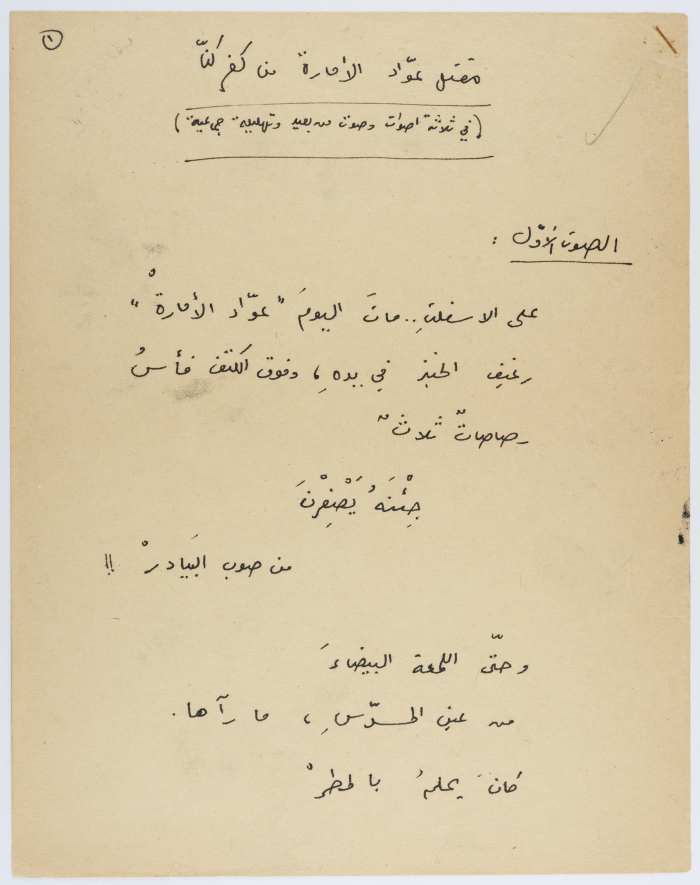 ١
مقتل عوّاد الأمارة من كفر كنّا
(في ثلاثة اصوات وصوت من بعيد وتهليلة جماعية)
الصوت الأوّل :
على الاسفلتِ.. ماتَ اليومَ "عوّاد الأمارةْ"
رغيف الخبز في يدهِ، وفوق الكتف فأسُ
رصاصاتٌ ثلاثٌ
جِئْنَهُ يَصْفِرْنَ
من صوب البَيَادرْ !!
وحتّى اللمعة البيضاءَ
من عينِ المسدّسِ، ما رآها.
كانَ يحلمُ بالمطرْ